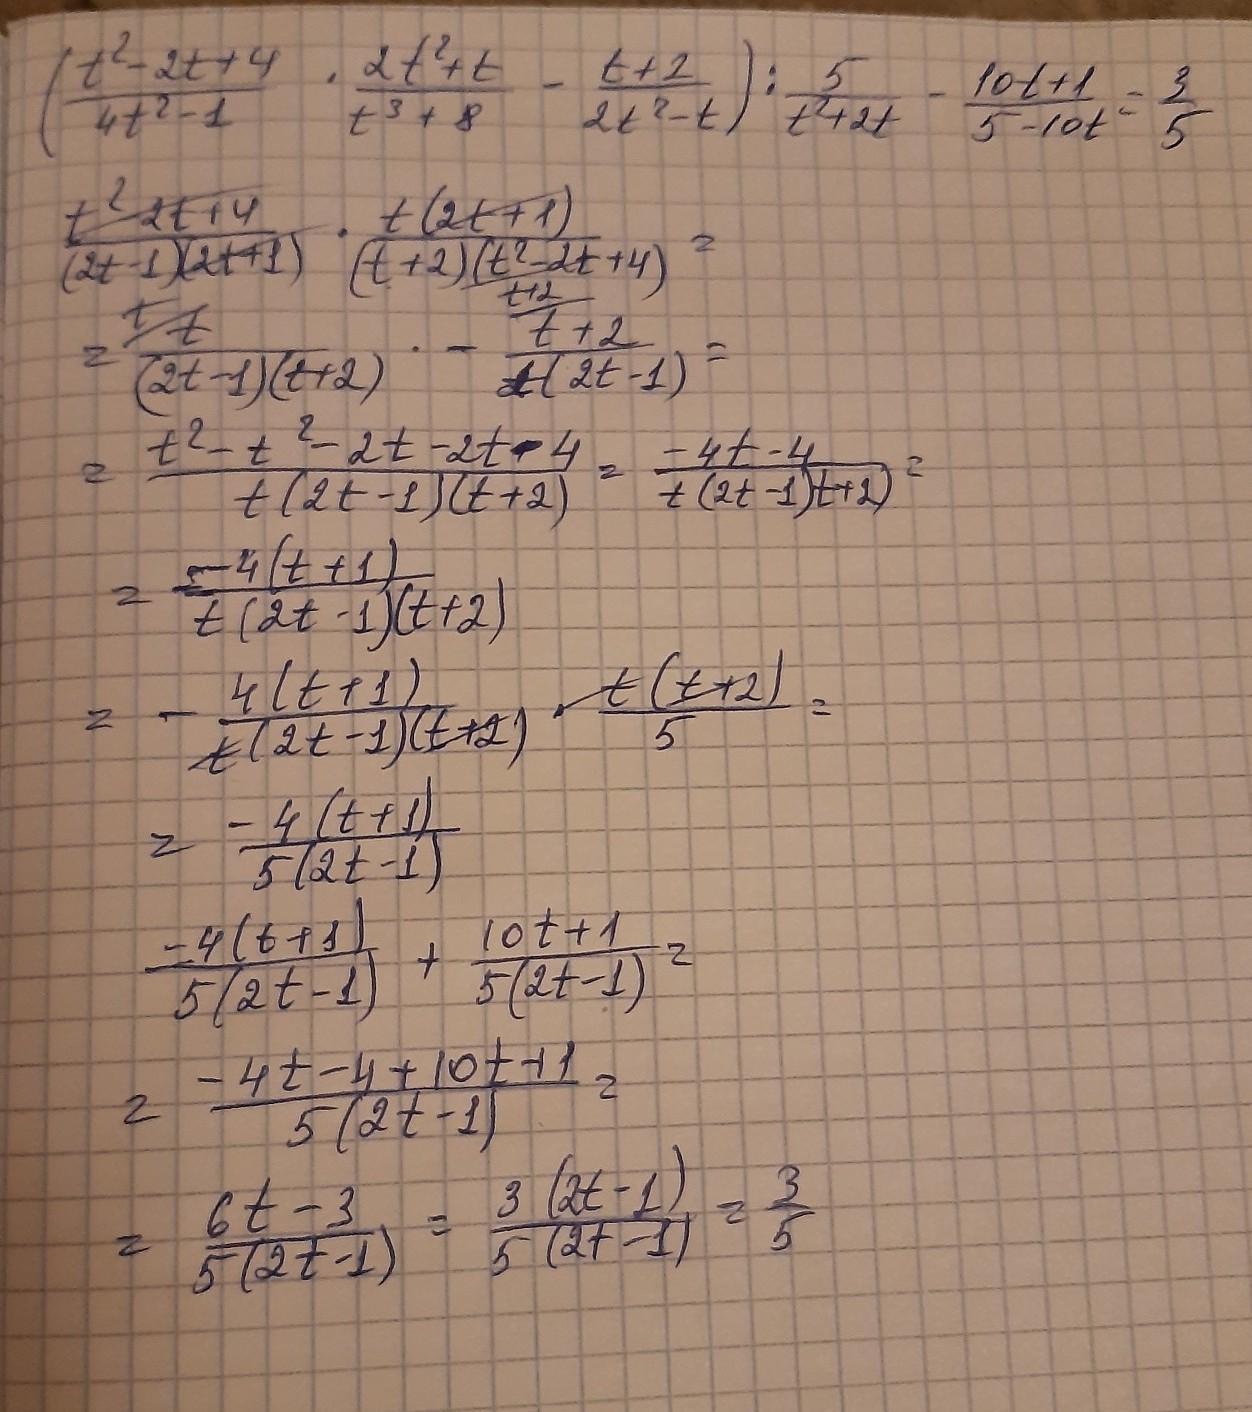 (t²-2t+4)/(4t²-1) · (2t²+t)/(t³+8) - (t+2)/(2t²-t)) : 5/(t²+2t) - (10t+1)/(5-10t) = 3/5
(t²-2t+4)/((2t-1)(2t+1)) · t(2t+1)/((t+2)(t²-2t+4)) =
= t/((2t-1)(t+2)) · - (t+2)/(t(2t-1)) =
= (t²-t²-2t-2t-4)/(t(2t-1)(t+2)) = (-4t-4)/(t(2t-1)t+2)) =
= -4(t+1)/(t(2t-1)(t+2))
= - 4(t+1)/(t(2t-1)(t+2)) · t(t+2)/5 =
= -4(t+1)/(5(2t-1))
-4(t+1)/(5(2t-1)) + (10t+1)/(5(2t-1)) =
= (-4t-4+10t+1)/(5(2t-1)) =
= (6t-3)/(5(2t-1)) = 3(2t-1)/(5(2t-1)) = 3/5